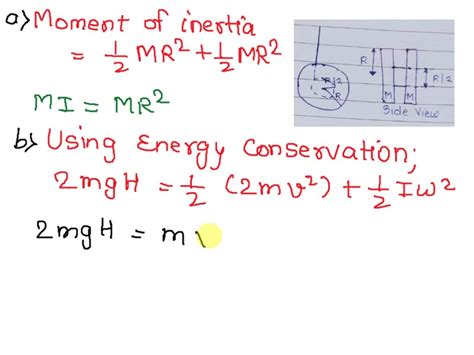 a) Moment of inertia
= 1/2 MR² + 1/2 MR²
MI = MR²
R/2
R
R
R/2
M M
Side View
b) Using Energy Conservation;
2mgH = 1/2 (2mv²) + 1/2 Iω²
2mgH = m